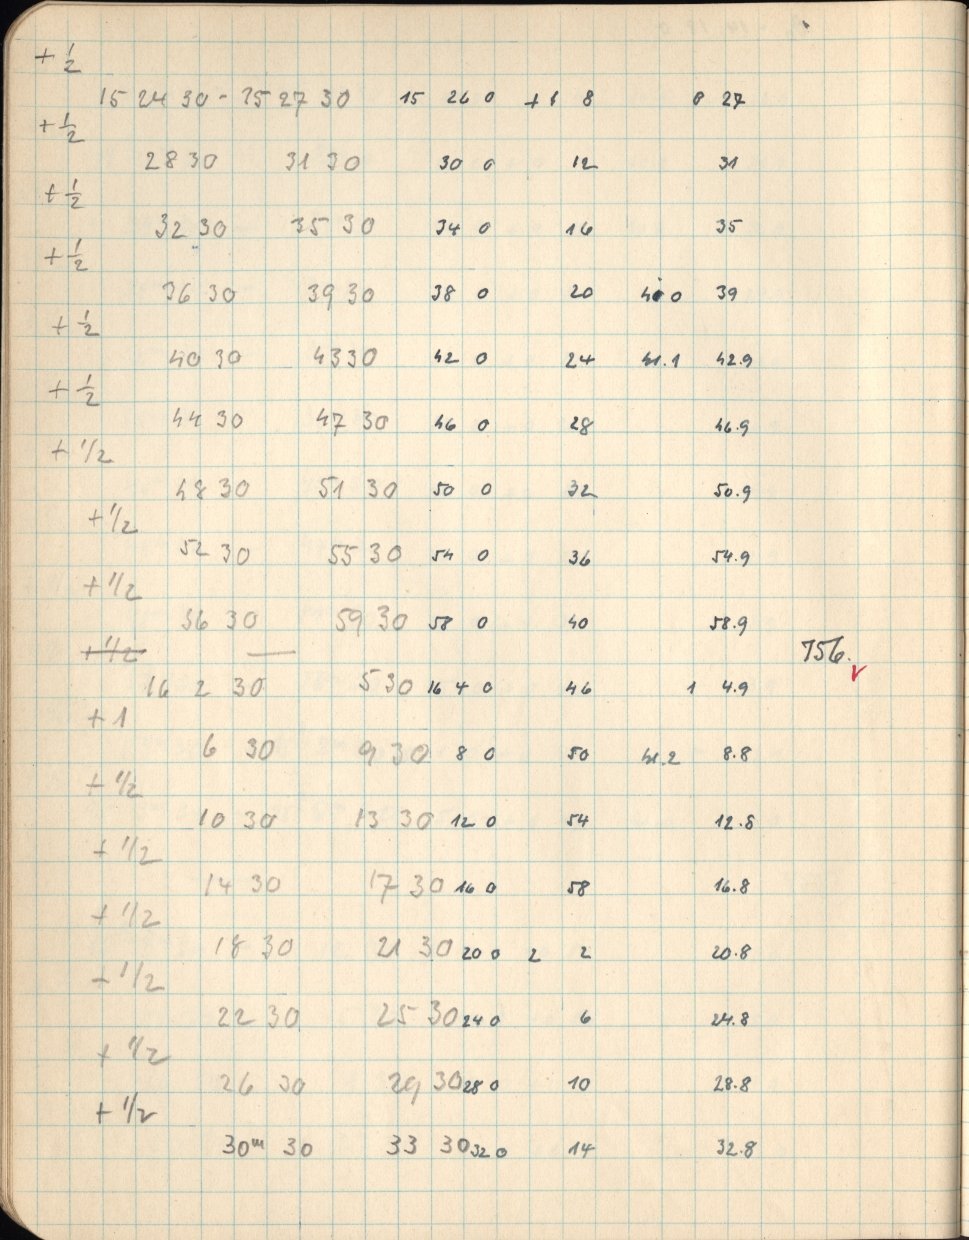 + 1/2
15 24 30 - 15 27 30 15 26 0 + 1 8 0 27
+ 1/2
28 30 31 30 30 0 12 31
+ 1/2
32 30 35 30 34 0 16 35
+ 1/2
36 30 39 30 38 0 20 39
+ 1/2
40 30 43 30 42 0 24 41.1 42.9
+ 1/2
44 30 47 30 46 0 28 46.9
+ 1/2
48 30 51 30 50 0 32 50.9
+ 1/2
52 30 55 30 54 0 36 54.9
+ 1/2
56 30 59 30 58 0 40 58.9
+ 1/2 —
756.
16 2 30 5 30 16 4 0 46 1 4.9
+ 1
6 30 9 30 8 0 50 41.2 8.8
+ 1/2
10 30 13 30 12 0 54 12.8
+ 1/2
14 30 17 30 16 0 58 16.8
+ 1/2
18 30 21 30 20 0 2 2 20.8
- 1/2
22 30 25 30 24 0 6 24.8
+ 1/2
26 30 29 30 28 0 10 28.8
+ 1/2
30m 30 33 30 32 0 14 32.8